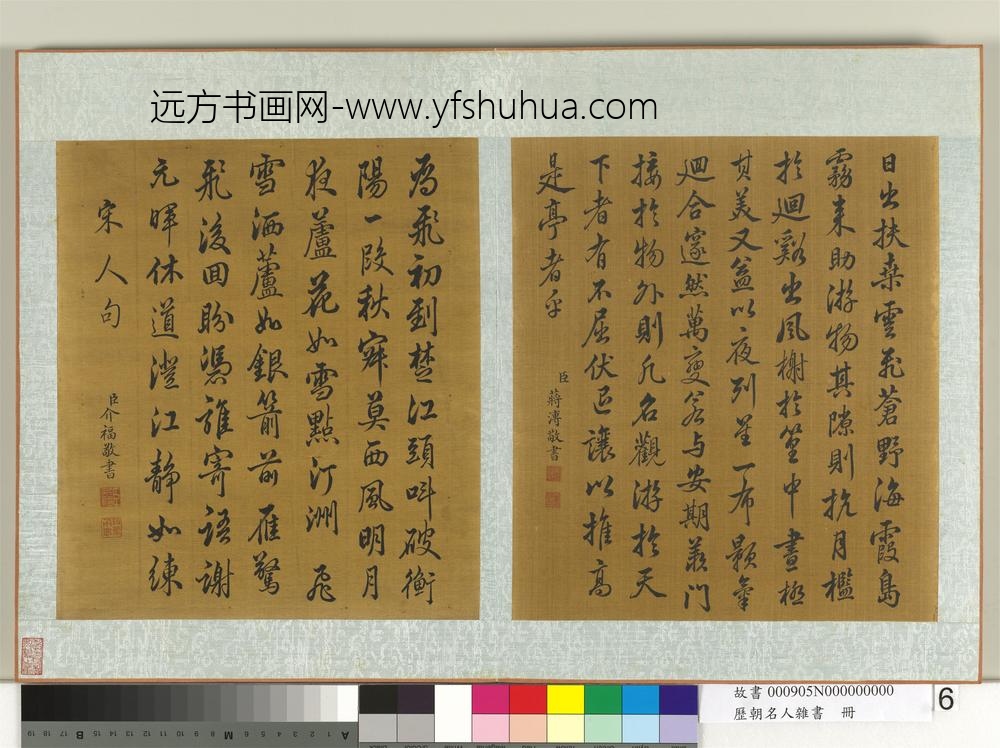 远方书画网-www.yfshuhua.com
日出扶桒雲飛蒼野海霞島
霧来助游物其隙則抗月檻
扵廻谿出風榭扵篁中晝極
其美又益以夜列星下布顥氣
廻合邃然萬變若与安期羡門
接扵物外則凡名觀游扵天
下者有不屈伏退讓以推高
是亭者乎
臣蔣溥敬書
為飛初到楚江頭叫破衡
陽一段秋寐莫西風明月
夜蘆花如雪點汀洲 飛
雪洒蘆如銀箭前雁驚
飛後回盼憑誰寄語謝
元暉休道澄江靜如練
宋人句
臣介福敬書
故書 000905N000000000
歷朝名人雜書 冊
6